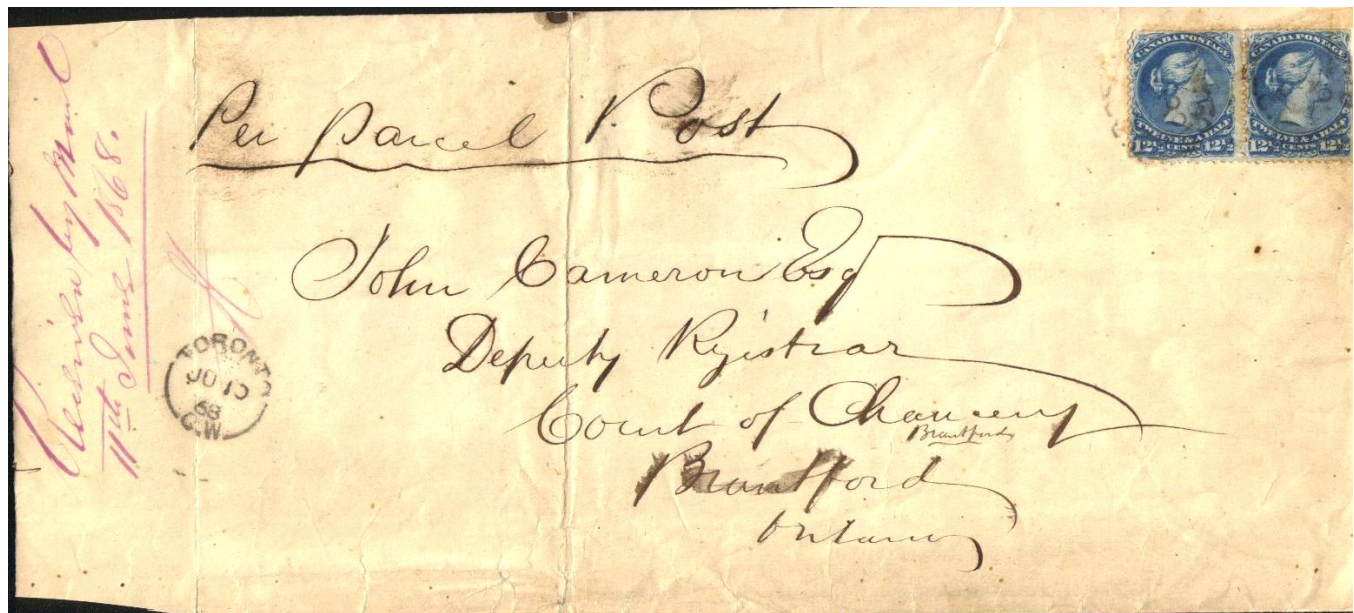 Received by Mail
11th June 1868.
Per Parcel Post
CANADA POSTAGE
TWELVE & A HALF
12½ CENTS 12½
CANADA POSTAGE
TWELVE & A HALF
12½ CENTS 12½
John Cameron Esq
Deputy Registrar
Court of Chancery
Brantford
Brantford
Ontario
TORONTO
JU 10
68
C.W.